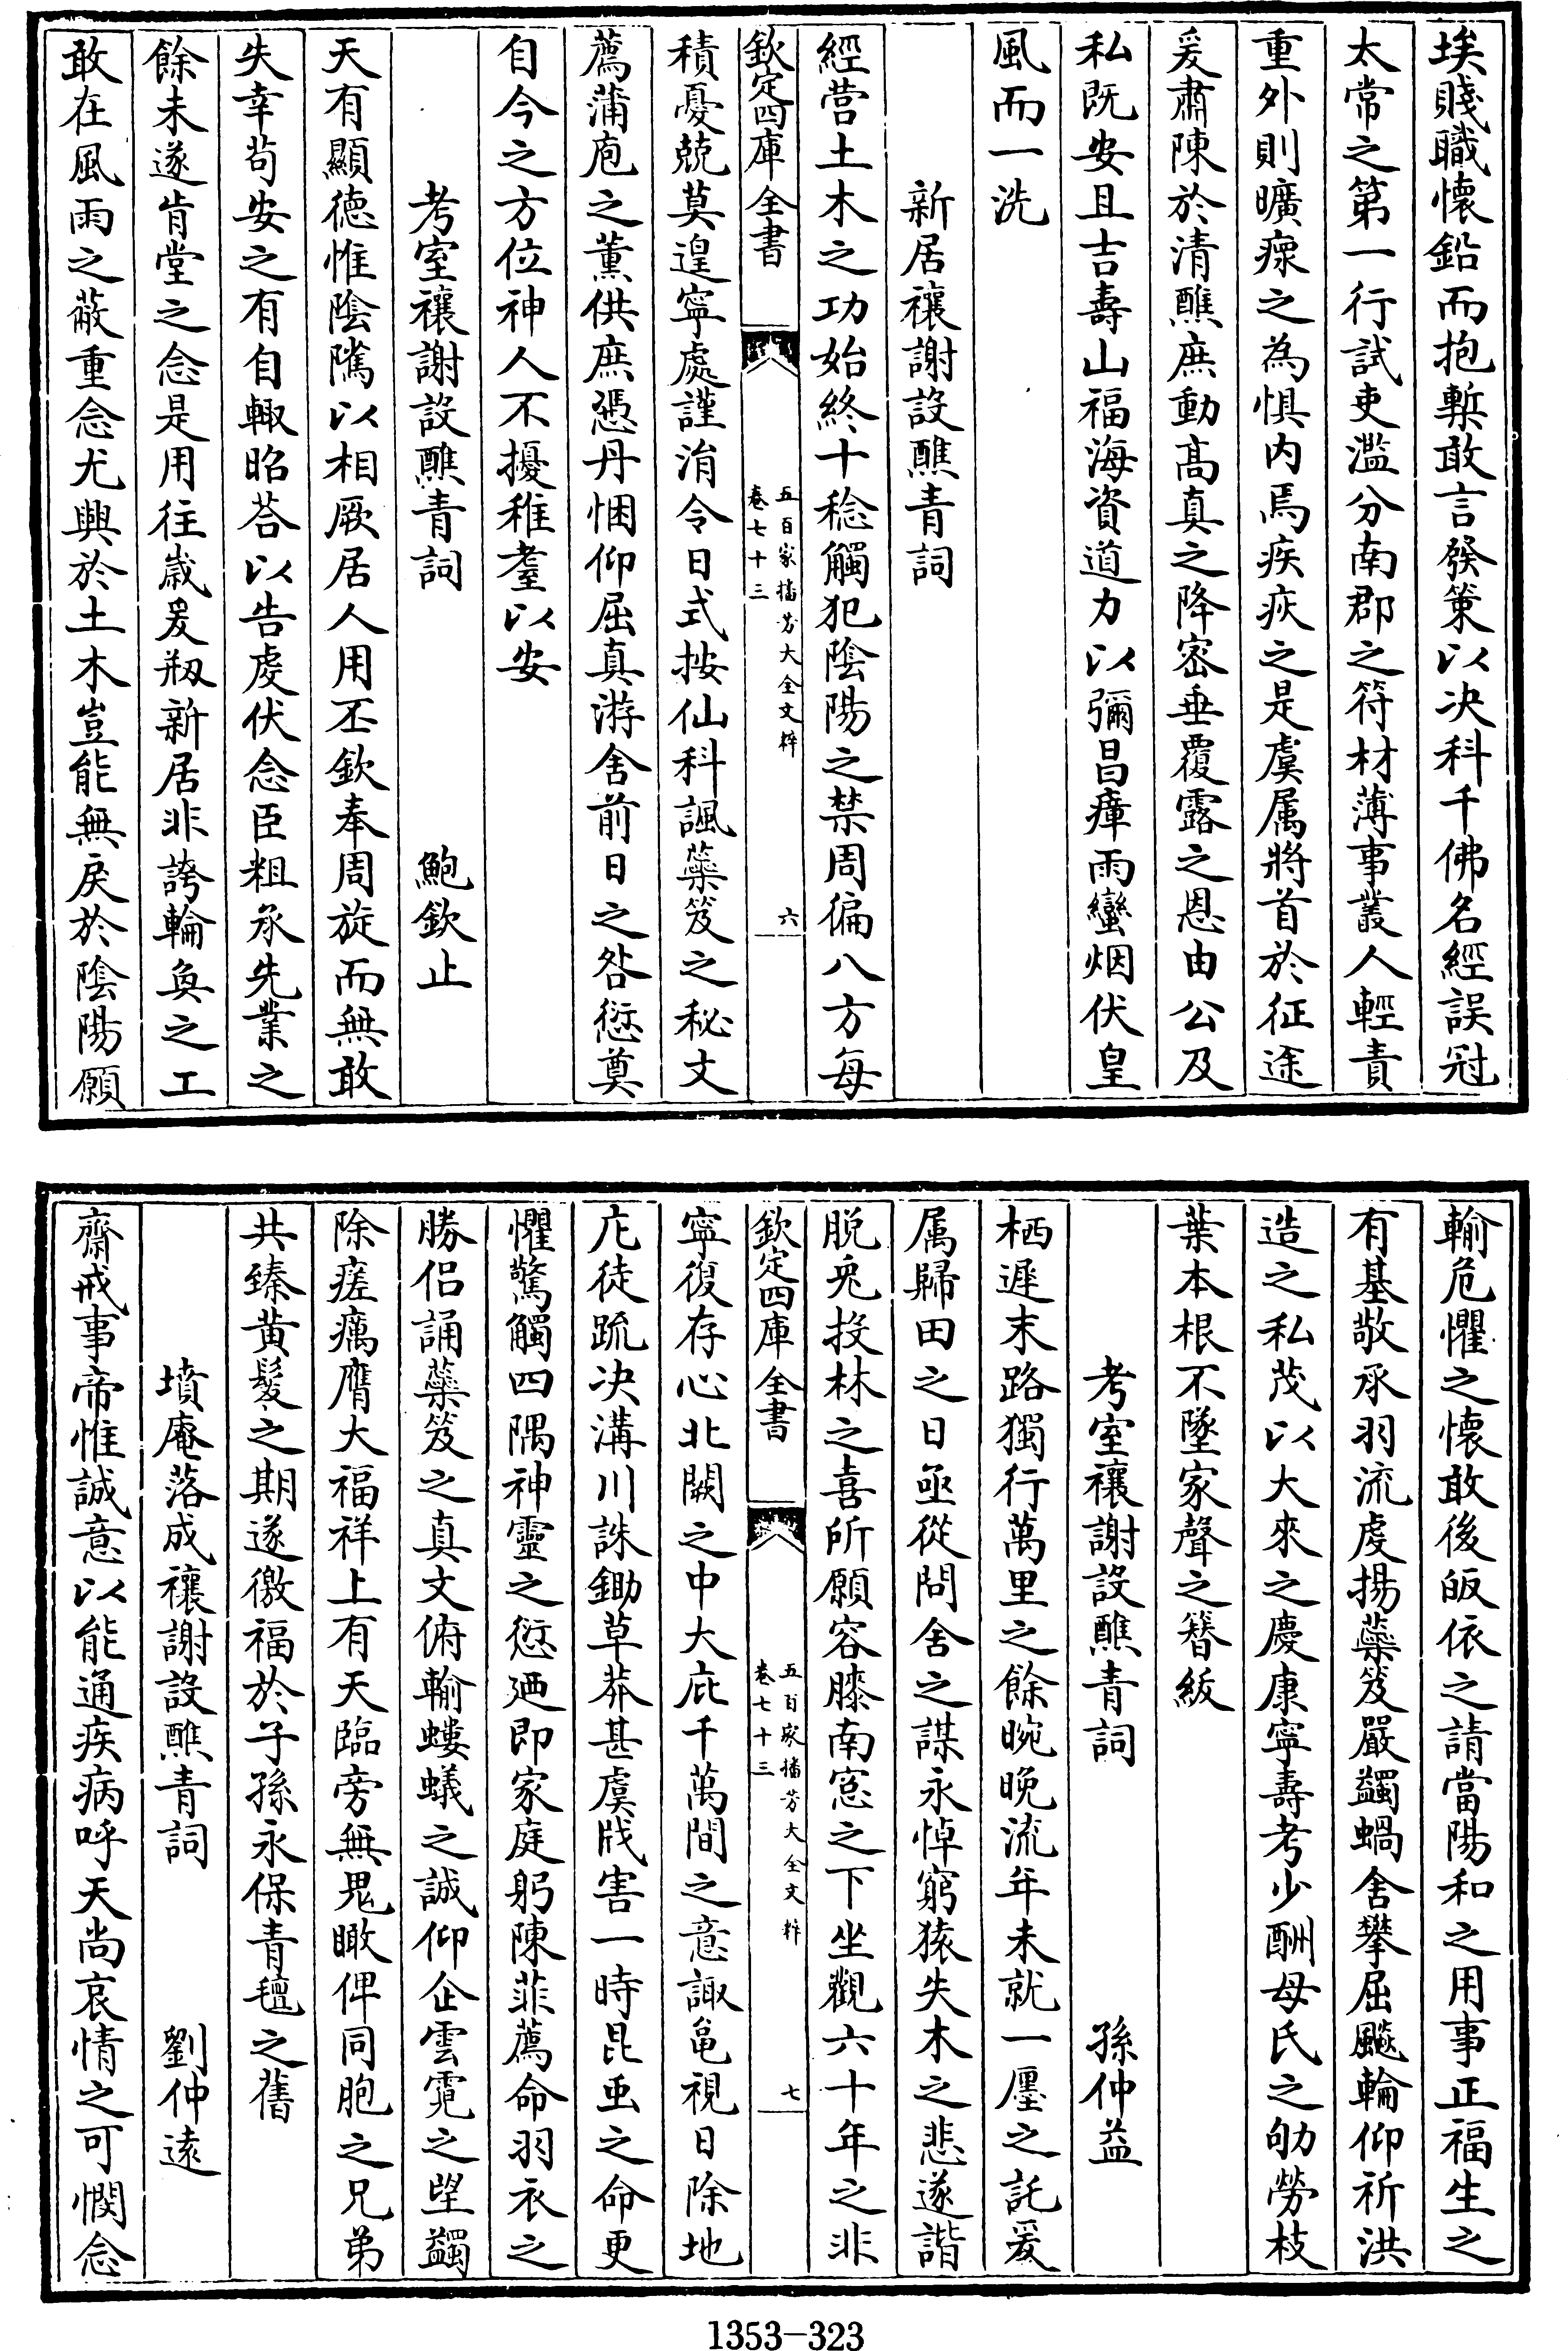 埃賤職懷鉛而抱槧敢言發策以決科千佛名經誤冠
太常之第一行試吏濫分南郡之符材薄事叢人輕責
重外則曠瘝之為惧内焉疾疢之是虞属將首於征途
爰肅陳於清醮庶動髙真之降宻垂覆露之恩由公及
私既安且吉壽山福海資道力以彌昌瘴雨蠻烟伏皇
風而一洗
新居禳謝設醮青詞
經營土木之功始終十稔觸犯陰陽之禁周徧八方每
欽定四庫全書
五百家播芳大全文粹
卷七十三
六
積憂兢莫遑寧處謹涓令日式按仙科諷蘂笈之秘文
薦蒲庖之薫供庶憑丹悃仰屈真游舍前日之咎愆奠
自今之方位神人不擾稚耋以安
考室禳謝設醮青詞 鮑欽止
天有顯德惟陰隲以相厥居人用丕欽奉周旋而無敢
失幸苟安之有自輙昭荅以告䖍伏念臣粗承先業之
餘未遂肯堂之念是用往歳爰剏新居非誇輪奐之工
敢在風雨之蔽重念尤興於土木豈能無戾於陰陽願
輸危懼之懷敢後皈依之請當陽和之用事正福生之
有基敬承羽流䖍揚蘂笈嚴蠲蝸舍攀屈飈輪仰祈洪
造之私茂以大來之慶康寧壽考少酬母氏之劬勞枝
葉本根不墜家聲之簮紱
考室禳謝設醮青詞 孫仲益
栖遲末路獨行萬里之餘晼晚流年未就一廛之託爰
属歸田之日亟從問舍之謀永悼窮猿失木之悲遂諧
脱兎投林之喜所願容膝南窓之下坐觀六十年之非
欽定四庫全書
五百家播芳大全文粹
卷七十三
七
寧復存心北闕之中大庇千萬間之意諏黽視日除地
庀徒疏决溝川誅鋤草莽甚虞戕害一時昆䖝之命更
懼驚觸四隅神靈之愆廼即家庭躬陳菲薦命羽衣之
勝侣誦蘂笈之真文俯輸螻蟻之誠仰企雲霓之望蠲
除瘥癘膺大福祥上有天臨旁無鬼瞰俾同胞之兄弟
共臻黄髪之期遂徼福於子孫永保青氊之舊
墳庵落成禳謝設醮青詞 劉仲逺
齋戒事帝惟誠意以能通疾病呼天尚哀情之可憫念
1353-323